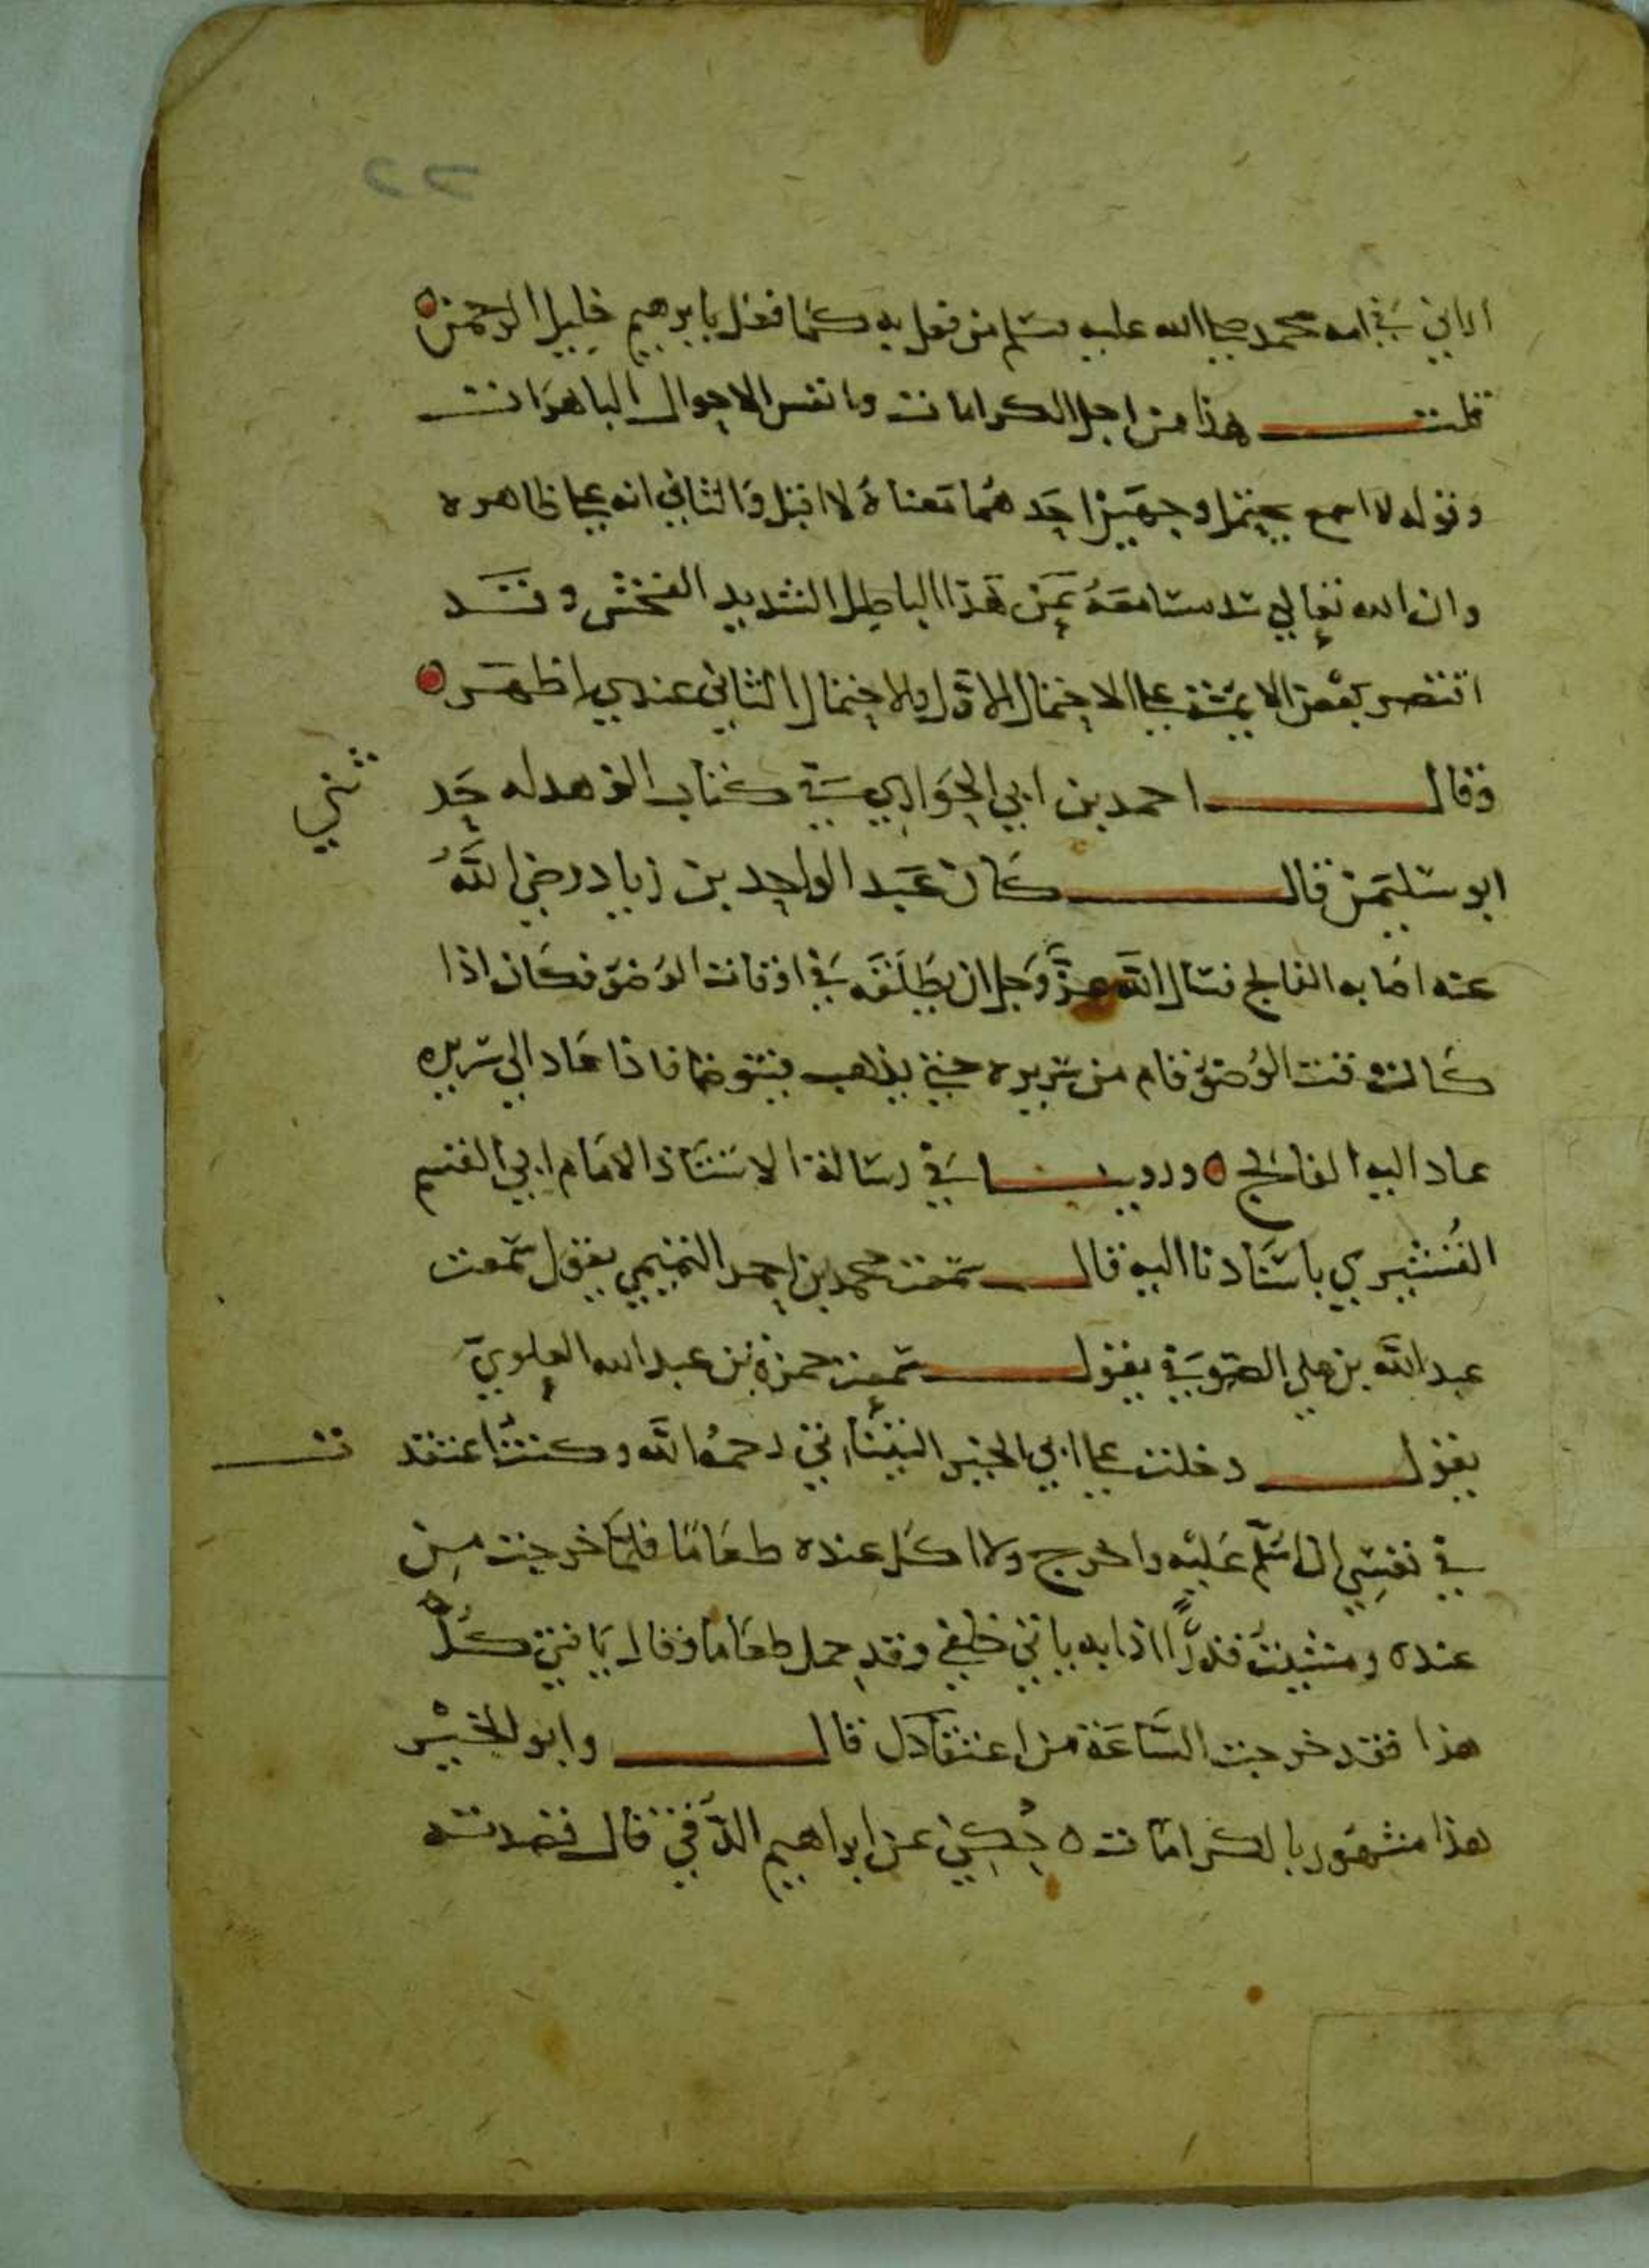 ٢٢
اراني في امه محمد صلى الله عليه وسلم من فعل به كما فعل بابرهيم خليل الرحمن ه
قلت هذا من اجل الكرامات وانفس الاحوال الباهرات
وقوله لا اسمع يحتمل وجهين احدهما معناه لا اقبل والثاني انه على ظاهره
وان الله تعالى سد مسامعه عن هذا الباطل الشديد الفحش وقد
اقتصر بعض الايمة على الاحتمال الاول والاحتمال الثاني عندي اظهر ه
وقال احمد بن ابي الحواري في كتاب الزهد له حد
ثني
ابو سليمن قال كان عبد الواحد بن زياد رضي الله
عنه اصابه الفالج فسال الله عز وجل ان يطلقه في اوقات الوضو فكان اذا
كان وقت الوضو قام من سريره حتى يذهب فيتوضا فاذا عاد الى سريره
عاد اليه الفالج ه وروينا في رسالة الاستاذ الامام ابي القسم
القشيري باسنادنا اليه قال سمعت محمد بن احمد التميمي يقول سمعت
عبد الله بن علي الصوفي يقول سمعت حمزة بن عبد الله العلوي
يقول دخلت على ابي الخير التيناتي رحمه الله وكنت اعتقد
ت
في نفسي ان اسلم عليه واخرج ولا اكل عنده طعاما فلما خرجت من
عنده ومشيت قدرا اذا به ياتي خلفي وقد حمل طعاما وقال يا فتى كل
هذا فقد خرجت الساعة من اعتقادك قال وابو الخير
هذا مشهور بالكرامات ه حكي عن ابراهيم الرقي قال قصدته